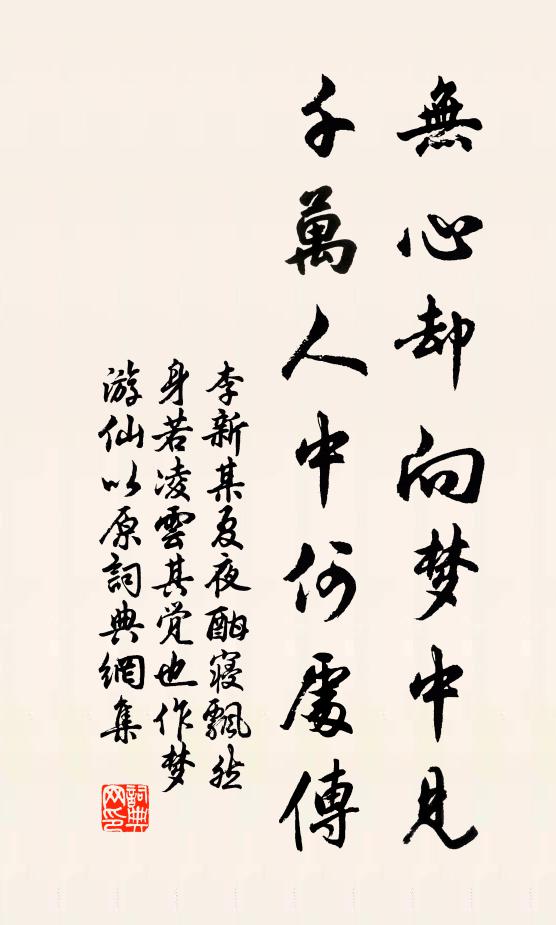 無心却向梦中見
千萬人中何處傳
李新某夏夜酣寝飄然
身若凌雲其觉也作梦
游仙以原詞典網集
詞典
网印